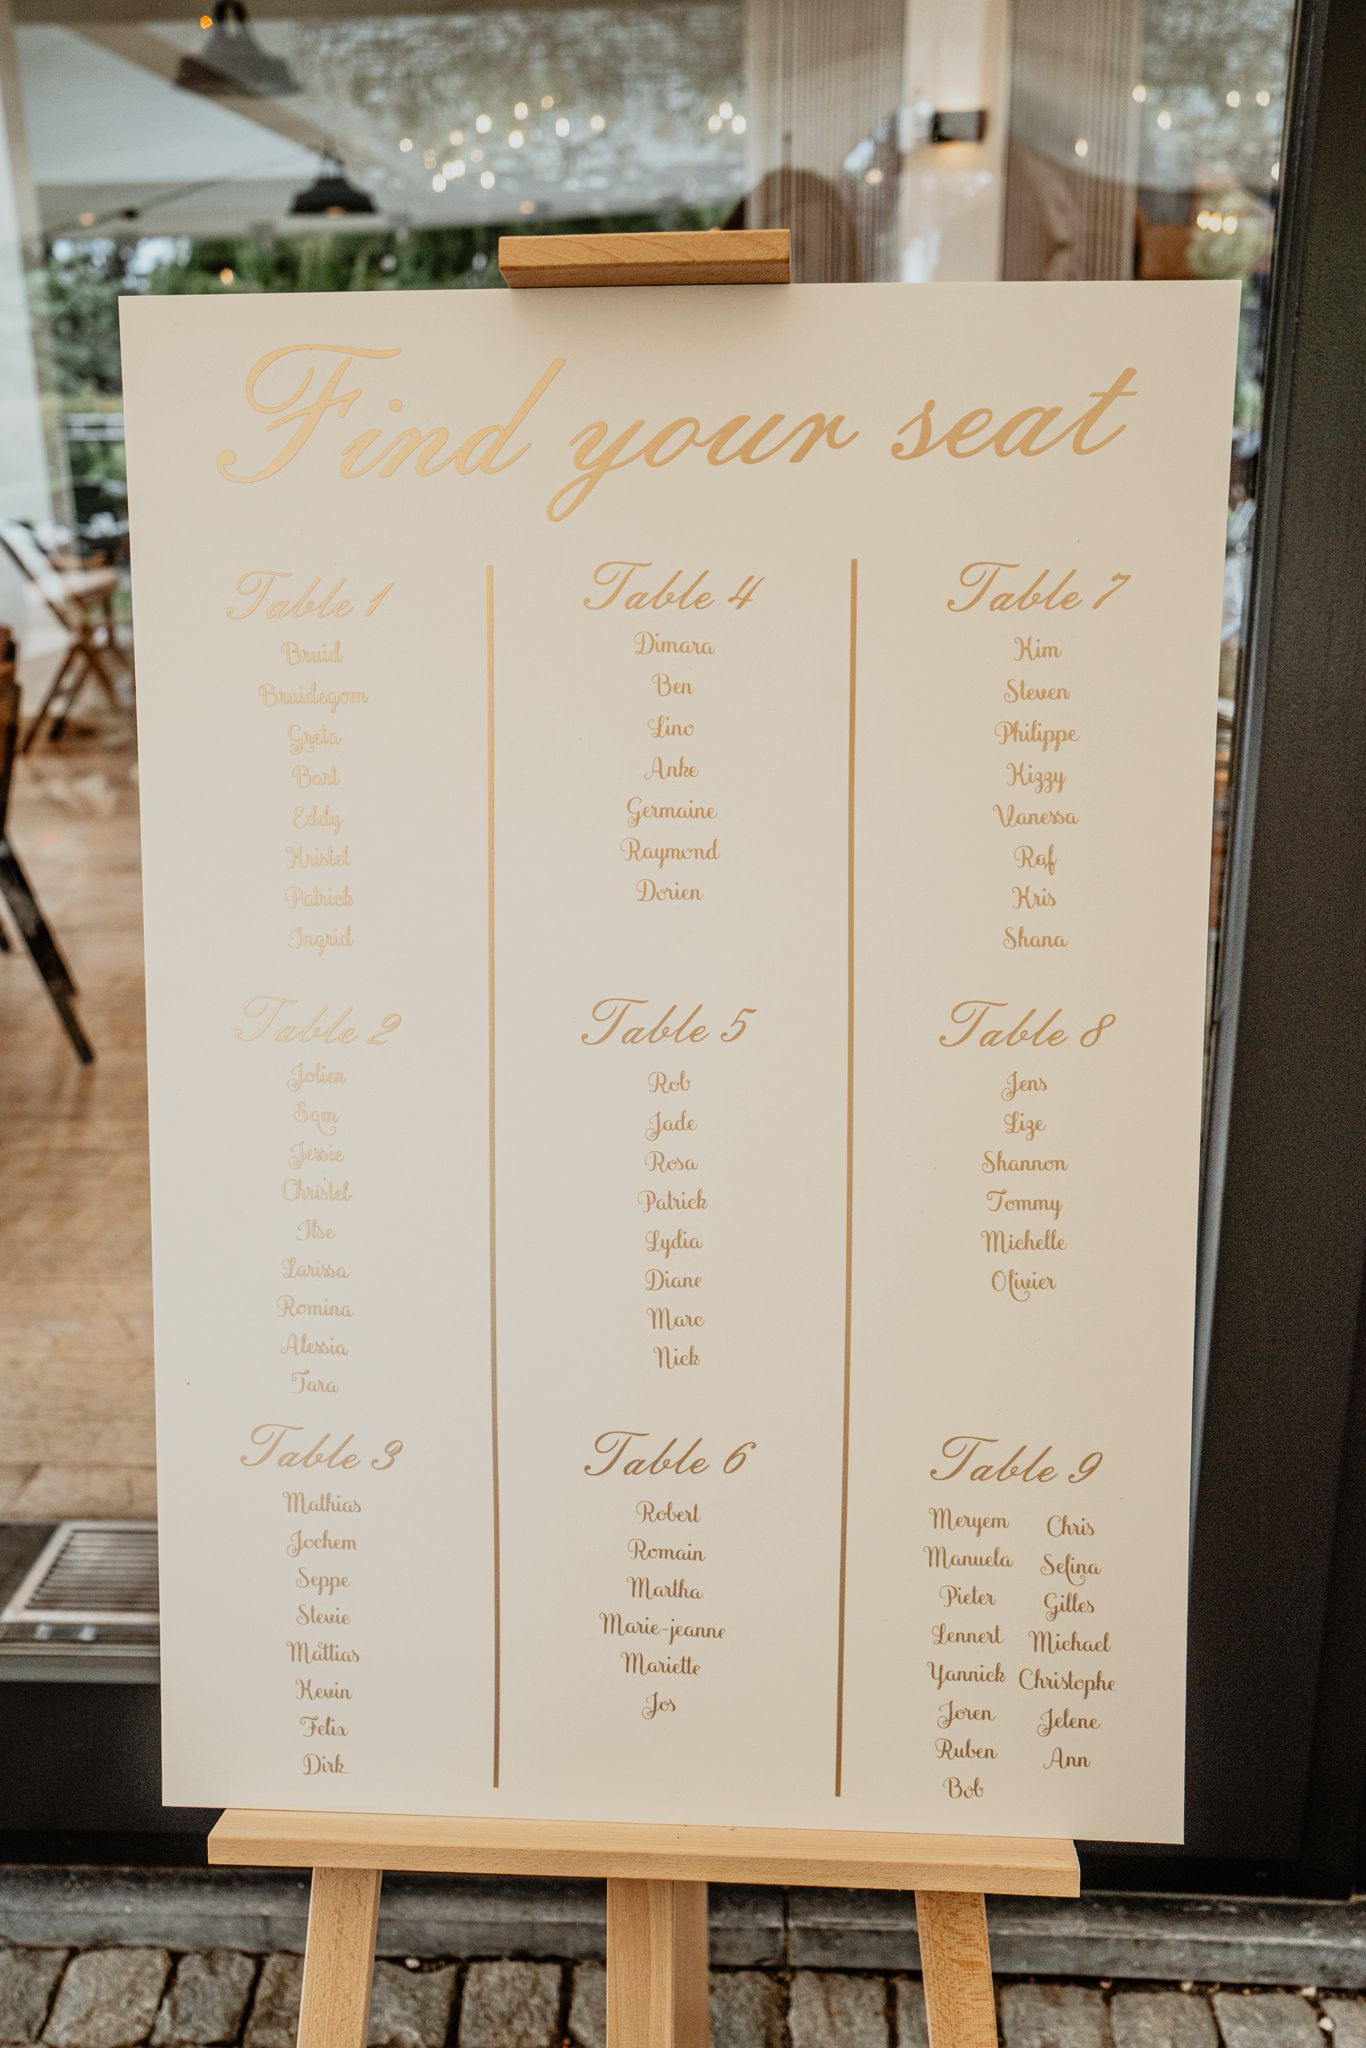 Find your seat
Table 1
Bruid
Bruidegom
Greta
Bart
Eddy
Kristel
Patrick
Ingrid
Table 2
Jolien
Sam
Jessie
Christel
Ilse
Larissa
Romina
Alessia
Tara
Table 3
Mathias
Jochem
Seppe
Stevie
Mattias
Kevin
Felix
Dirk
Table 4
Dimara
Ben
Lino
Anke
Germaine
Raymond
Dorien
Table 5
Rob
Jade
Rosa
Patrick
Lydia
Diane
Marc
Nick
Table 6
Robert
Romain
Martha
Marie-jeanne
Mariette
Jos
Table 7
Kim
Steven
Philippe
Kizzy
Vanessa
Raf
Kris
Shana
Table 8
Jens
Lize
Shannon
Tommy
Michelle
Olivier
Table 9
Meryem
Manuela
Pieter
Lennert
Yannick
Joren
Ruben
Bob
Chris
Selina
Gilles
Michael
Christophe
Jelene
Ann